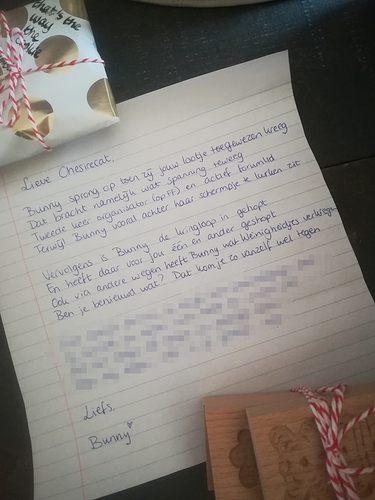 that's the
way
the
Lieve Chesirecat,
Bunny sprong op toen zij jouw lootje toegewezen kreeg
Dat bracht namelijk wat spanning teweeg
Tweede keer organisator (op FF) en actief forumlid
Terwijl Bunny vooral achter haar schermpje te lurken zit
Vervolgens is Bunny de kringloop in gehopt
En heeft daar voor jou één en ander geshopt
Ook via andere wegen heeft Bunny wat kleinigheidjes verkregen
Ben je benieuwd wat? Dat kom je zo vanzelf wel tegen
Liefs,
Bunny